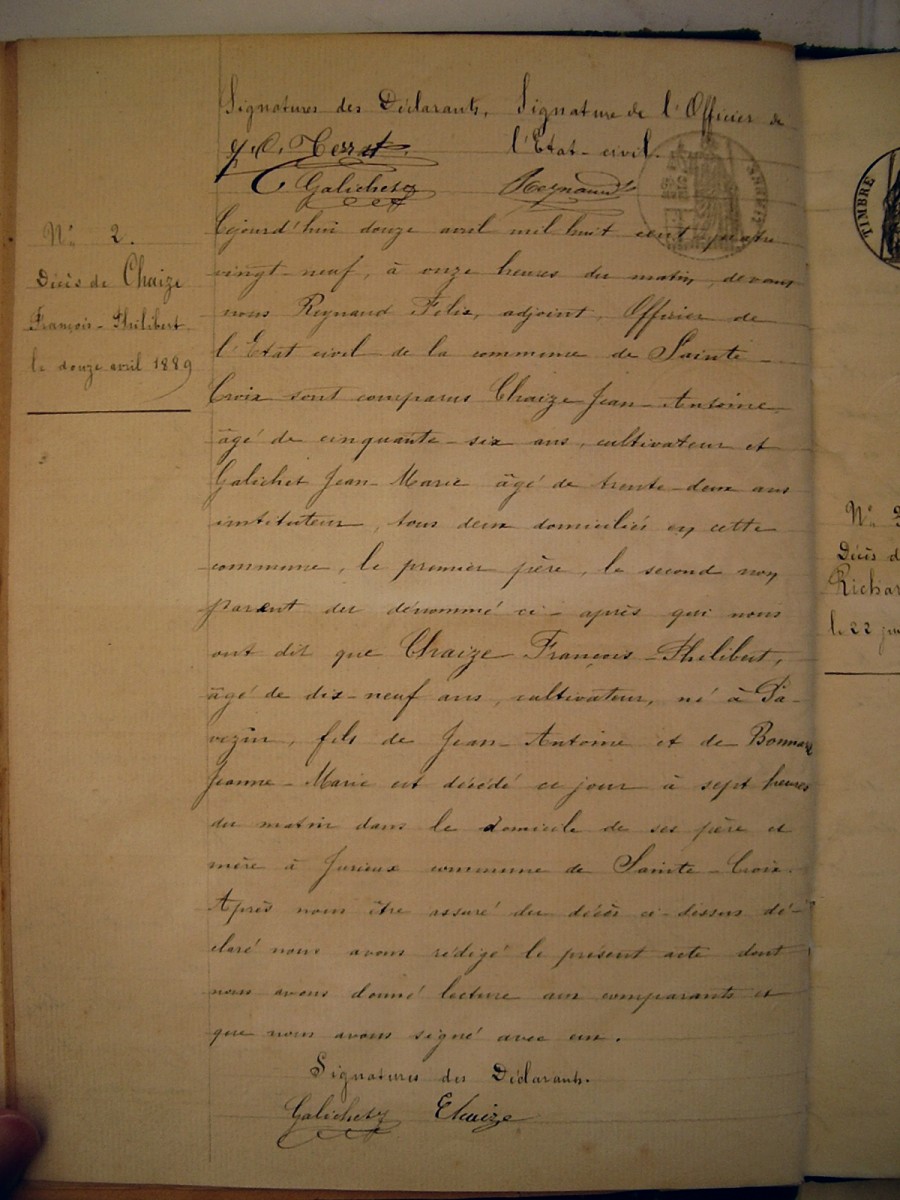 Signatures des Déclarants. Signature de l'Officier de
l'Etat-civil.
Galichet Reynaud
N° 2.
Décès de Chaize
François-Philibert
le douze avril 1889
Cejourd'hui douze avril mil huit cent quatre
vingt-neuf, à onze heures du matin, devant
nous Reynaud Félix, adjoint, Officier de
l'Etat civil de la commune de Sainte-
Croix sont comparus Chaize Jean-Antoine
âgé de cinquante-six ans, cultivateur et
Galichet Jean-Marie âgé de trente-deux ans
instituteur, tous deux domiciliés en cette
commune, le premier père, le second non
parent du dénommé ci-après qui nous
ont dit que Chaize François-Philibert,
âgé de dix-neuf ans, cultivateur, né à Pa-
vezin, fils de Jean-Antoine et de Bonnard
Jeanne-Marie est décédé ce jour à sept heures
du matin dans le domicile de ses père et
mère à Jurieux commune de Sainte-Croix.
Après nous être assuré du décès ci-dessus dé-
claré nous avons rédigé le présent acte dont
nous avons donné lecture aux comparants et
que nous avons signé avec eux.
Signatures des Déclarants.
Galichet Chaize
TIMBRE
N°
Décès d
Richar
le 22 ju